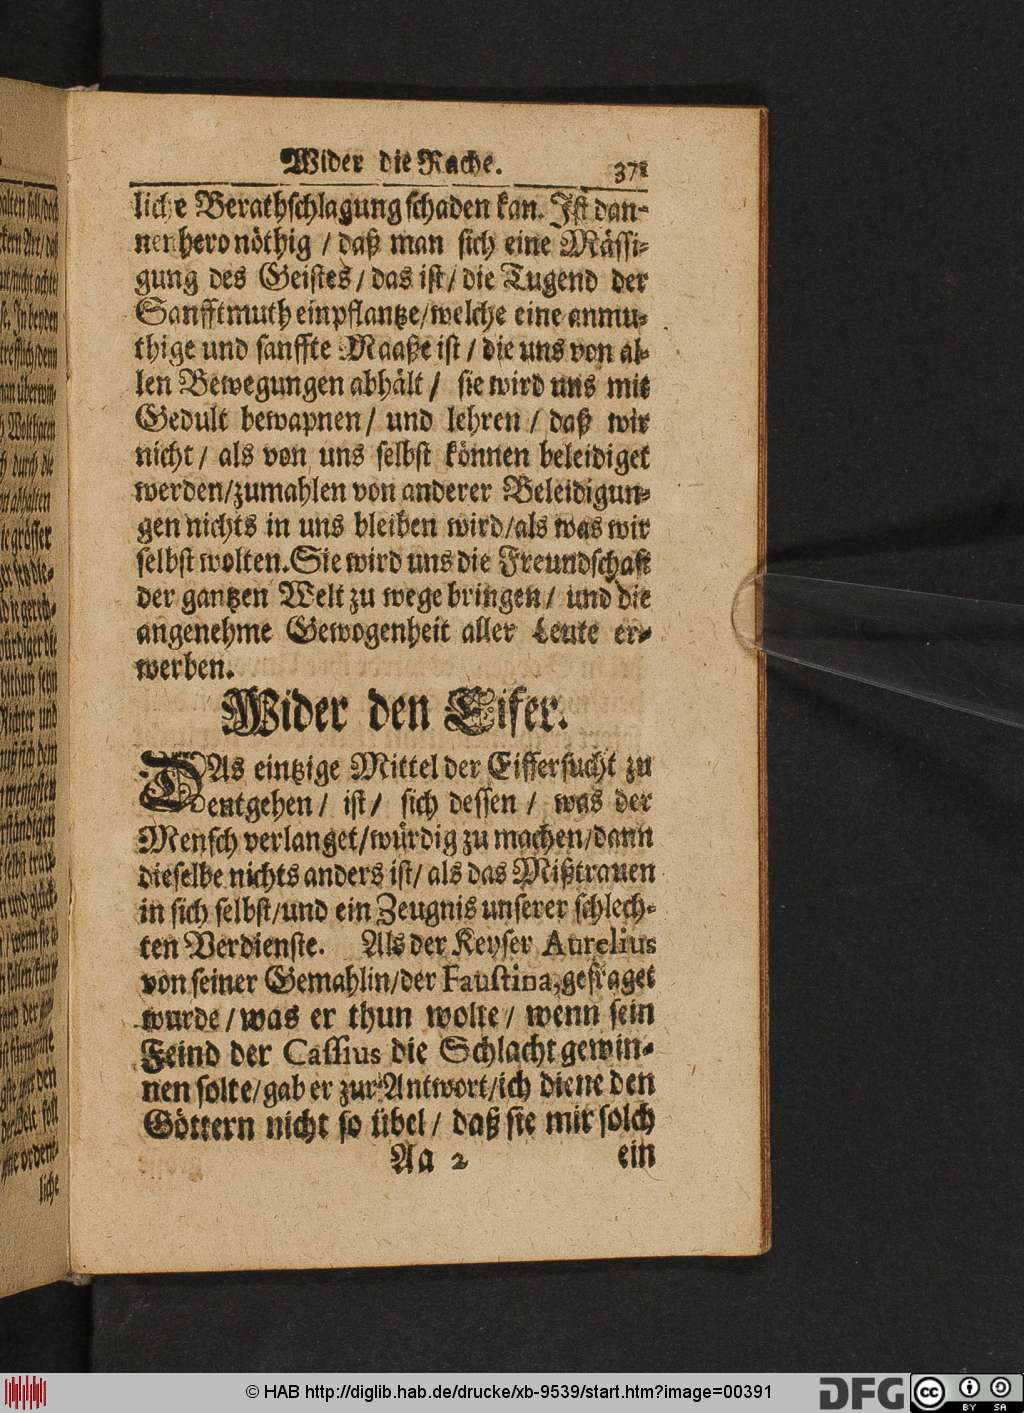 Wider die Rache. 371
liche Berathschlagung schaden kan. Ist dan-
nenhero nöthig / daß man sich eine Mässi-
gung des Geistes / das ist / die Tugend der
Sanfftmuth einpflantze / welche eine anmu-
thige und sanffte Maaße ist / die uns von al-
len Bewegungen abhält / sie wird uns mit
Gedult bewapnen / und lehren / daß wir
nicht / als von uns selbst können beleidiget
werden / zumahlen von anderer Beleidigun-
gen nichts in uns bleiben wird / als was wir
selbst wolten. Sie wird uns die Freundschaft
der gantzen Welt zu wege bringen / und die
angenehme Gewogenheit aller Leute er-
werben.
Wider den Eifer.
DAs eintzige Mittel der Eiffersucht zu
entgehen / ist / sich dessen / was der
Mensch verlanget / würdig zu machen / dann
dieselbe nichts anders ist / als das Mißtrauen
in sich selbst / und ein Zeugnis unserer schlech-
ten Verdienste. Als der Keyser Aurelius
von seiner Gemahlin / der Faustina, gefraget
wurde / was er thun wolte / wenn sein
Feind der Cassius die Schlacht gewin-
nen solte / gab er zur Antwort / ich diene den
Göttern nicht so übel / daß sie mir solch
Aa 2 ein
© HAB http://diglib.hab.de/drucke/xb-9539/start.htm?image=00391
DFG
cc BY SA